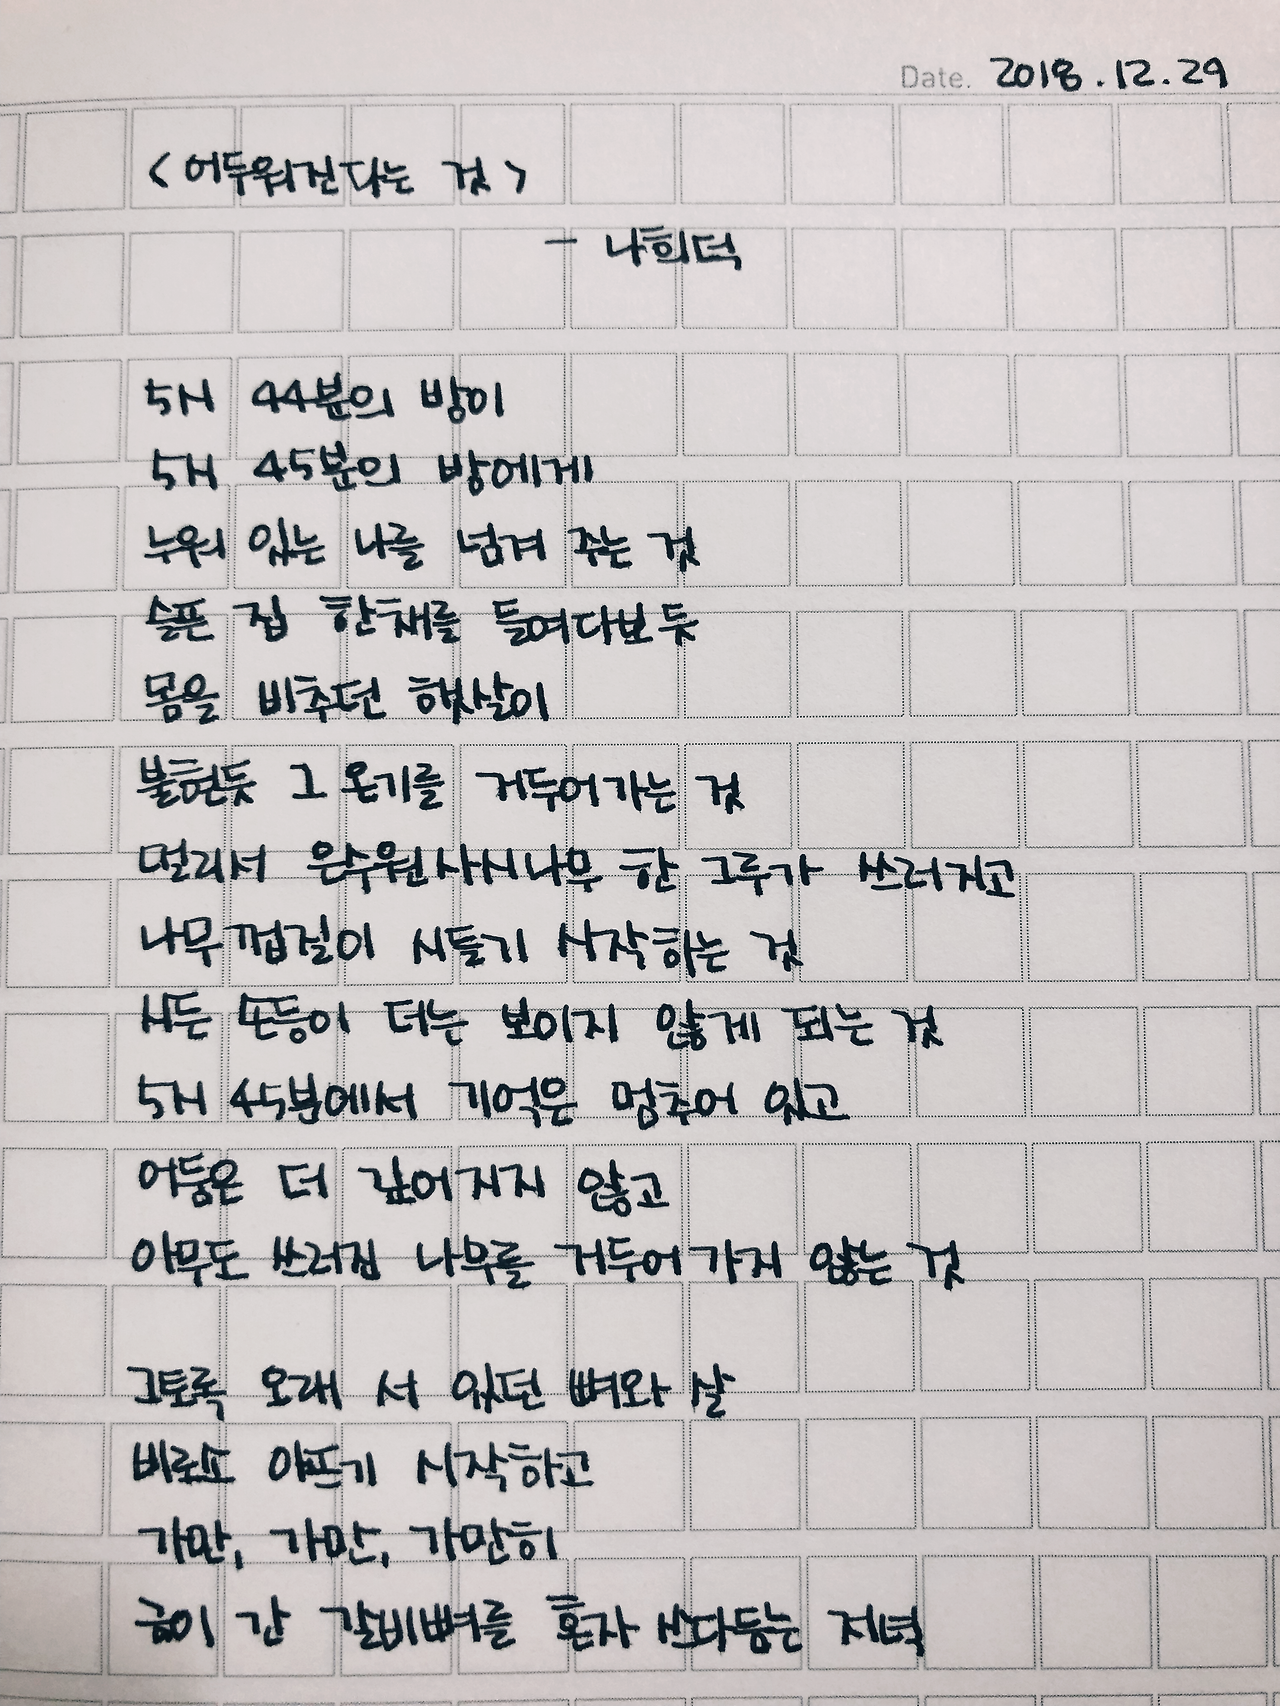 Date. 2018.12.29
<어두워진다는 것>
- 나희덕
5시 44분의 방이
5시 45분의 방에게
누워 있는 나를 넘겨 주는 것
슬픈 집 한채를 들여다보듯
몸을 비추던 햇살이
불현듯 그 온기를 거두어가는 것
멀리서 은수원사시나무 한 그루가 쓰러지고
나무껍질이 시들기 시작하는 것
시든 손등이 더는 보이지 않게 되는 것
5시 45분에서 기억은 멈추어 있고
어둠은 더 깊어지지 않고
아무도 쓰러진 나무를 거두어 가지 않는 것
그토록 오래 서 있던 뼈와 살
비로소 아프기 시작하고
가만, 가만, 가만히
금이 간 갈비뼈를 혼자 쓰다듬는 저녁